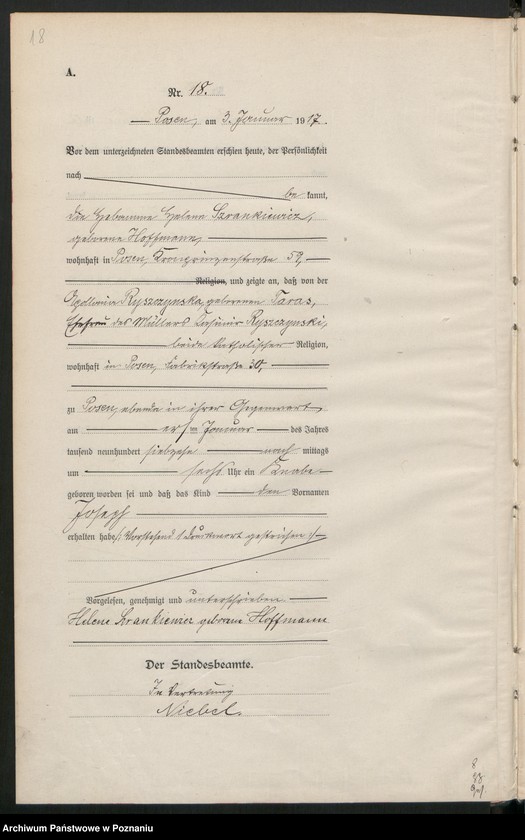 18
A.
Nr. 18.
Posen, am 3. Januar 1917.
Vor dem unterzeichneten Standesbeamten erschien heute, der Persönlichkeit
nach
be kannt,
die Hebamme Helene Szrankiewicz,
geborene Hoffmann,
wohnhaft in Posen, Kronprinzenstraße 59,
Religion, und zeigte an, daß von der
Ryszczynska, geborenen Taras,
Ehefrau des Müllers Casimir Ryszczynski,
beide katholischer Religion,
wohnhaft in Posen, Fabrikstraße 30,
zu Posen, ebenda in ihrer Gegenwart,
am ersten Januar des Jahres
tausend neunhundert siebzehn nach mittags
um sechs Uhr ein Knabe
geboren worden sei und daß das Kind den Vornamen
Joseph
erhalten habe. Vorstehend 1 Druckwort gestrichen.
Vorgelesen, genehmigt und unterschrieben
Helene Szrankiewicz geborene Hoffmann
Der Standesbeamte.
In Vertretung
Niebel.
8
Archiwum Państwowe w Poznaniu